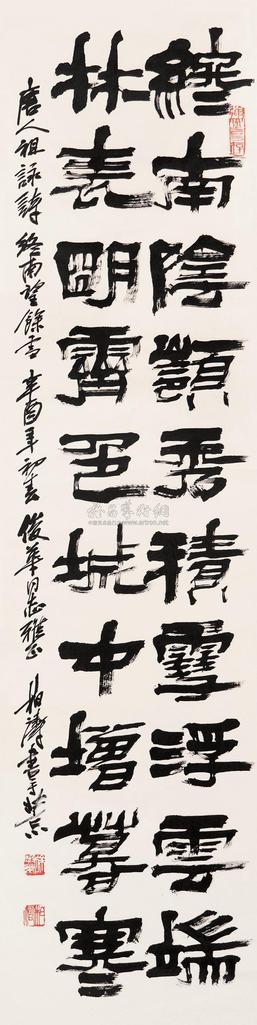 終南陰嶺秀積雪浮雲端
林表明霽色城中增暮寒
唐人祖詠詩終南望餘雪辛酉年初春俊華同志雅正柏濤書于北京